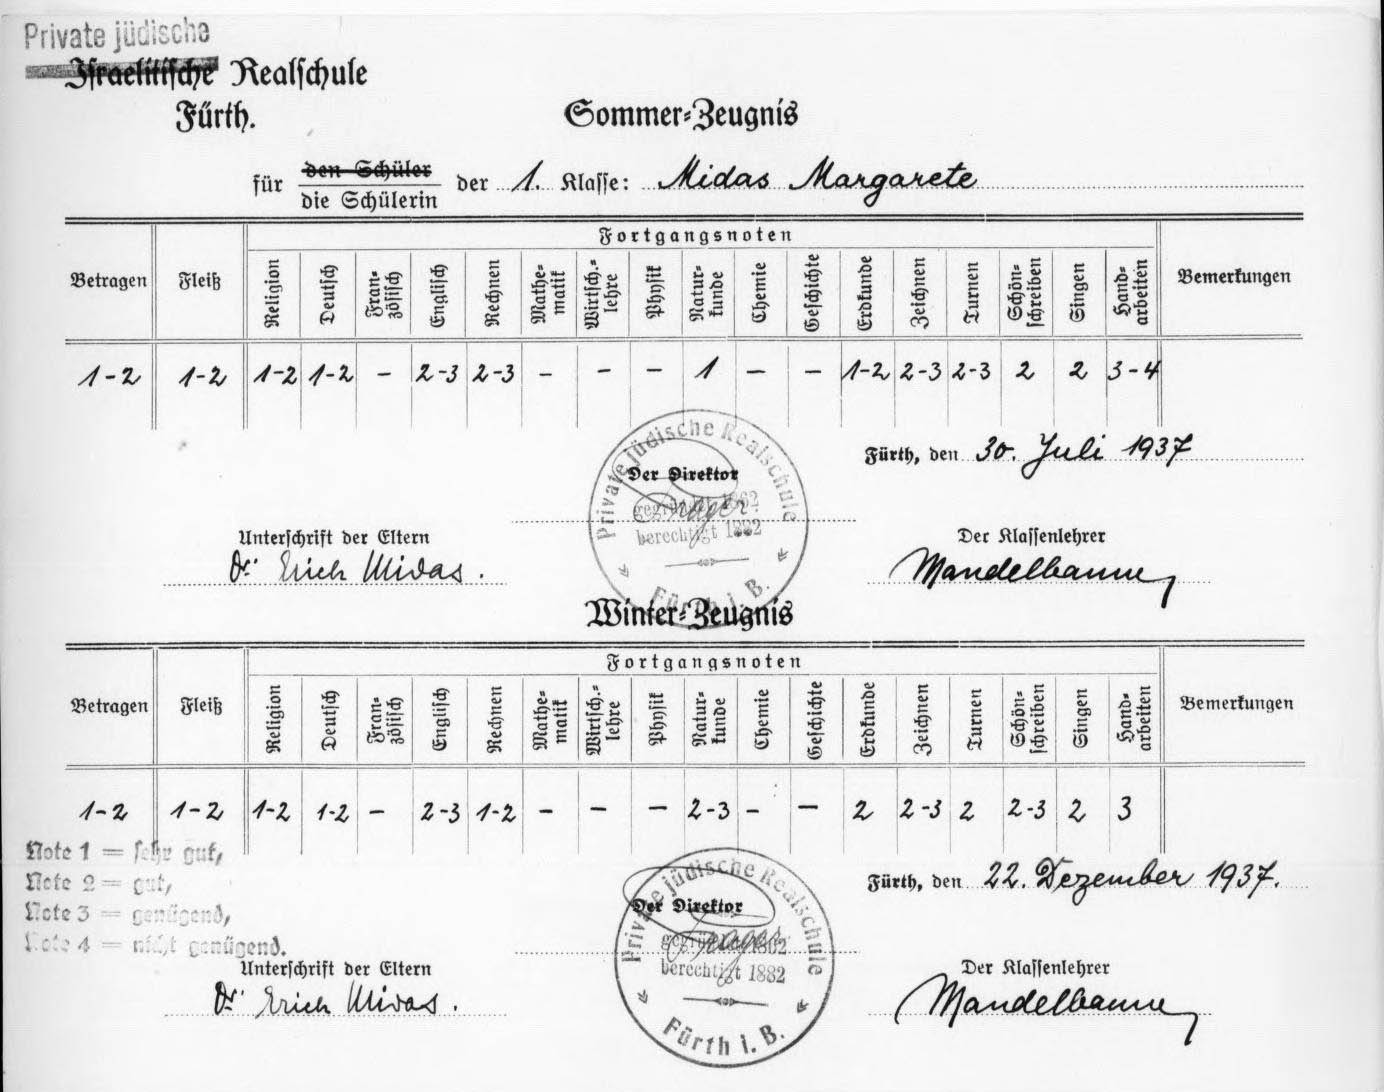 Private jüdische
Israelitische Realschule
Fürth.
Sommer-Zeugnis
für den Schüler
die Schülerin der 1. Klasse: Midas Margarete
Fortgangsnoten
Betragen Fleiß Religion Deutsch Fran-zösisch Englisch Rechnen Mathe-matik Wirtsch.-lehre Physik Natur-kunde Chemie Geschichte Erdkunde Zeichnen Turnen Schön-schreiben Singen Hand-arbeiten Bemerkungen
1-2 1-2 1-2 1-2 – 2-3 2-3 – – – 1 – – 1-2 2-3 2-3 2 2 3-4
Fürth, den 30. Juli 1937
Private jüdische Realschule
Der Direktor
gegründet 1862
berechtigt 1882
Fürth i. B.
Unterschrift der Eltern
Dr. Erich Midas.
Der Klassenlehrer
Mandelbaum
Winter-Zeugnis
Fortgangsnoten
Betragen Fleiß Religion Deutsch Fran-zösisch Englisch Rechnen Mathe-matik Wirtsch.-lehre Physik Natur-kunde Chemie Geschichte Erdkunde Zeichnen Turnen Schön-schreiben Singen Hand-arbeiten Bemerkungen
1-2 1-2 1-2 1-2 – 2-3 1-2 – – – 2-3 – – 2 2-3 2 2-3 2 3
Note 1 = sehr gut,
Note 2 = gut,
Note 3 = genügend,
Note 4 = nicht genügend.
Fürth, den 22. Dezember 1937.
Private jüdische Realschule
Der Direktor
gegründet 1862
berechtigt 1882
Fürth i. B.
Unterschrift der Eltern
Dr. Erich Midas.
Der Klassenlehrer
Mandelbaum